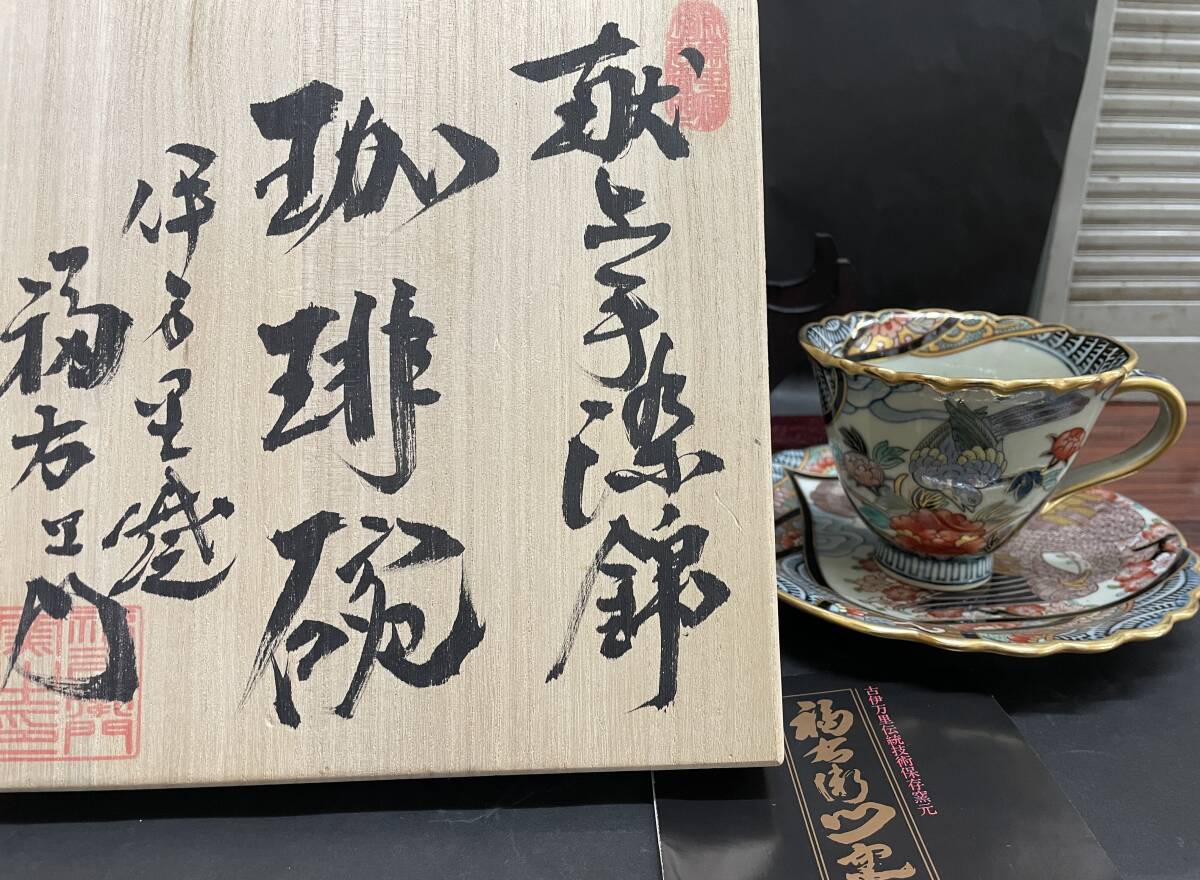 献上手染錦
珈琲碗
伊万里焼
福右エ門
古伊万里伝統技術保存窯元
福右衛門窯